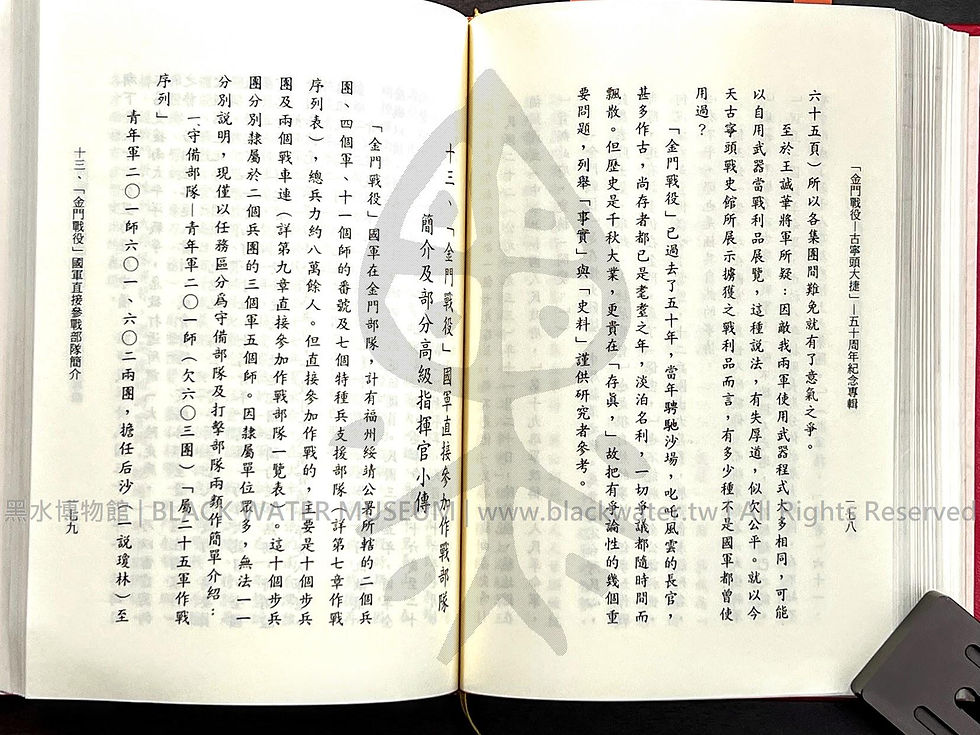 「金門戰役—古寧頭大捷」—五十周年紀念專輯
一七八
六十五頁）所以各集團間難免就有了意氣之爭。
至於王誠華將軍所疑：因敵我兩軍使用武器程式大多相同，可能
以自用武器當戰利品展覽，這種說法，有失厚道，似欠公平。就以今
天古寧頭戰史館所展示擄獲之戰利品而言，有多少種不是國軍都曾使
用過？
「金門戰役」已過去了五十年，當年騁馳沙場，叱吒風雲的長官，
甚多作古，尚存者都已是耄耋之年，淡泊名利，一切爭議都隨時間而
飄散。但歷史是千秋大業，更貴在「存眞，」故把有爭論性的幾個重
要問題，列舉「事實」與「史料」謹供研究者參考。
十三、「金門戰役」國軍直接參加作戰部隊
簡介及部分高級指揮官小傳
「金門戰役」國軍在金門部隊，計有福州綏靖公署所轄的二個兵
團、四個軍、十一個師的番號及七個特種兵支援部隊（詳第七章作戰
序列表），總兵力約八萬餘人。但直接參加作戰的，主要是十個步兵
團及兩個戰車連（詳第九章直接參加作戰部隊一覽表）。這十個步兵
團分別隸屬於二個兵團的三個軍五個師。因隸屬單位眾多，無法一一
分別說明，現僅以任務區分爲守備部隊及打擊部隊兩類作簡單介紹：
一、守備部隊—青年軍二〇一師（欠六〇三團）「屬二十五軍作戰
序列」
青年軍二〇一師六〇一、六〇二兩團，擔任后沙（一說瓊林）至
十三、「金門戰役」國軍直接參戰部隊簡介
一七九
黑水博物館 | BLACK WATER MUSEUM | www.blackwater.tw | All Rights Reserved